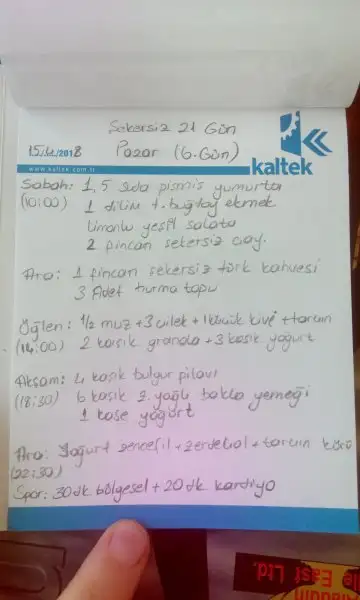 Şekersiz 21 Gün
15/4/2018 Pazar (6.Gün)
kaltek
www.kaltek.com.tr
Sabah: 1,5 ada pişmiş yumurta
(10:00) 1 dilim t.buğday ekmek
limonlu yeşil salata
2 fincan şekersiz çay.
Ara: 1 fincan şekersiz türk kahvesi
3 Adet hurma topu
Öğlen: 1/2 muz + 3 çilek + 1 küçük kivi + tarçın
(14:00) 2 kaşık granola + 3 kaşık yoğurt
Akşam: 4 kaşık bulgur pilavı
(18:30) 6 kaşık z.yağlı bakla yemeği
1 kase yoğurt
Ara: Yoğurt zencefil + zerdeçal + tarçın kürü
(22:30)
Spor: 30dk bölgesel + 20dk kardiyo
le East Ltd.